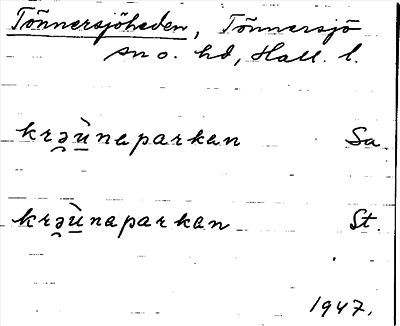 Tönnersjöheden, Tönnersjö
sn o. hd, Hall. l.
krə̯ùnaparkan Sa.
krə̯ùnaparkan St.
1947.